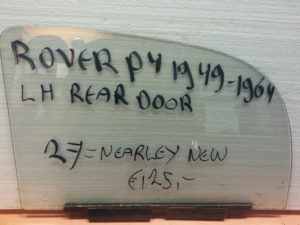 ROVER P4 1949-1964
LH REAR DOOR
27=NEARLEY NEW
€125,-